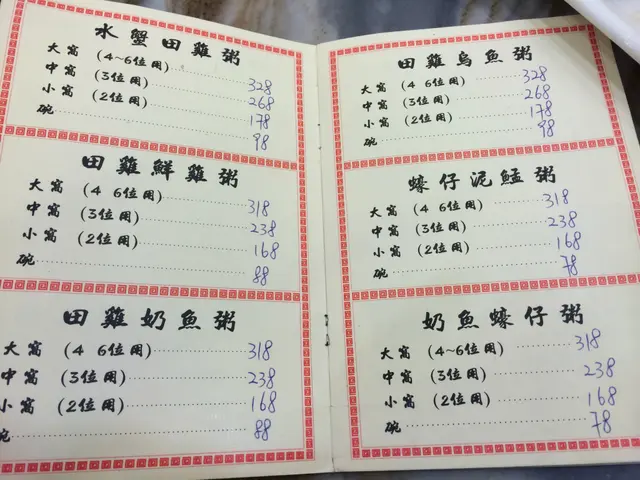 水蟹田雞粥
大窩 (4~6位用) 328
中窩 (3位用) 268
小窩 (2位用) 178
碗 98
田雞鮮雞粥
大窩 (4 6位用) 318
中窩 (3位用) 238
小窩 (2位用) 168
碗 88
田雞奶魚粥
大窩 (4 6位用) 318
中窩 (3位用) 238
小窩 (2位用) 168
碗 88
田雞烏魚粥
大窩 (4 6位用) 328
中窩 (3位用) 268
小窩 (2位用) 178
碗 98
蠔仔泥鯭粥
大窩 (4 6位用) 318
中窩 (3位用) 238
小窩 (2位用) 168
碗 78
奶魚蠔仔粥
大窩 (4~6位用) 318
中窩 (3位用) 238
小窩 (2位用) 168
碗 78